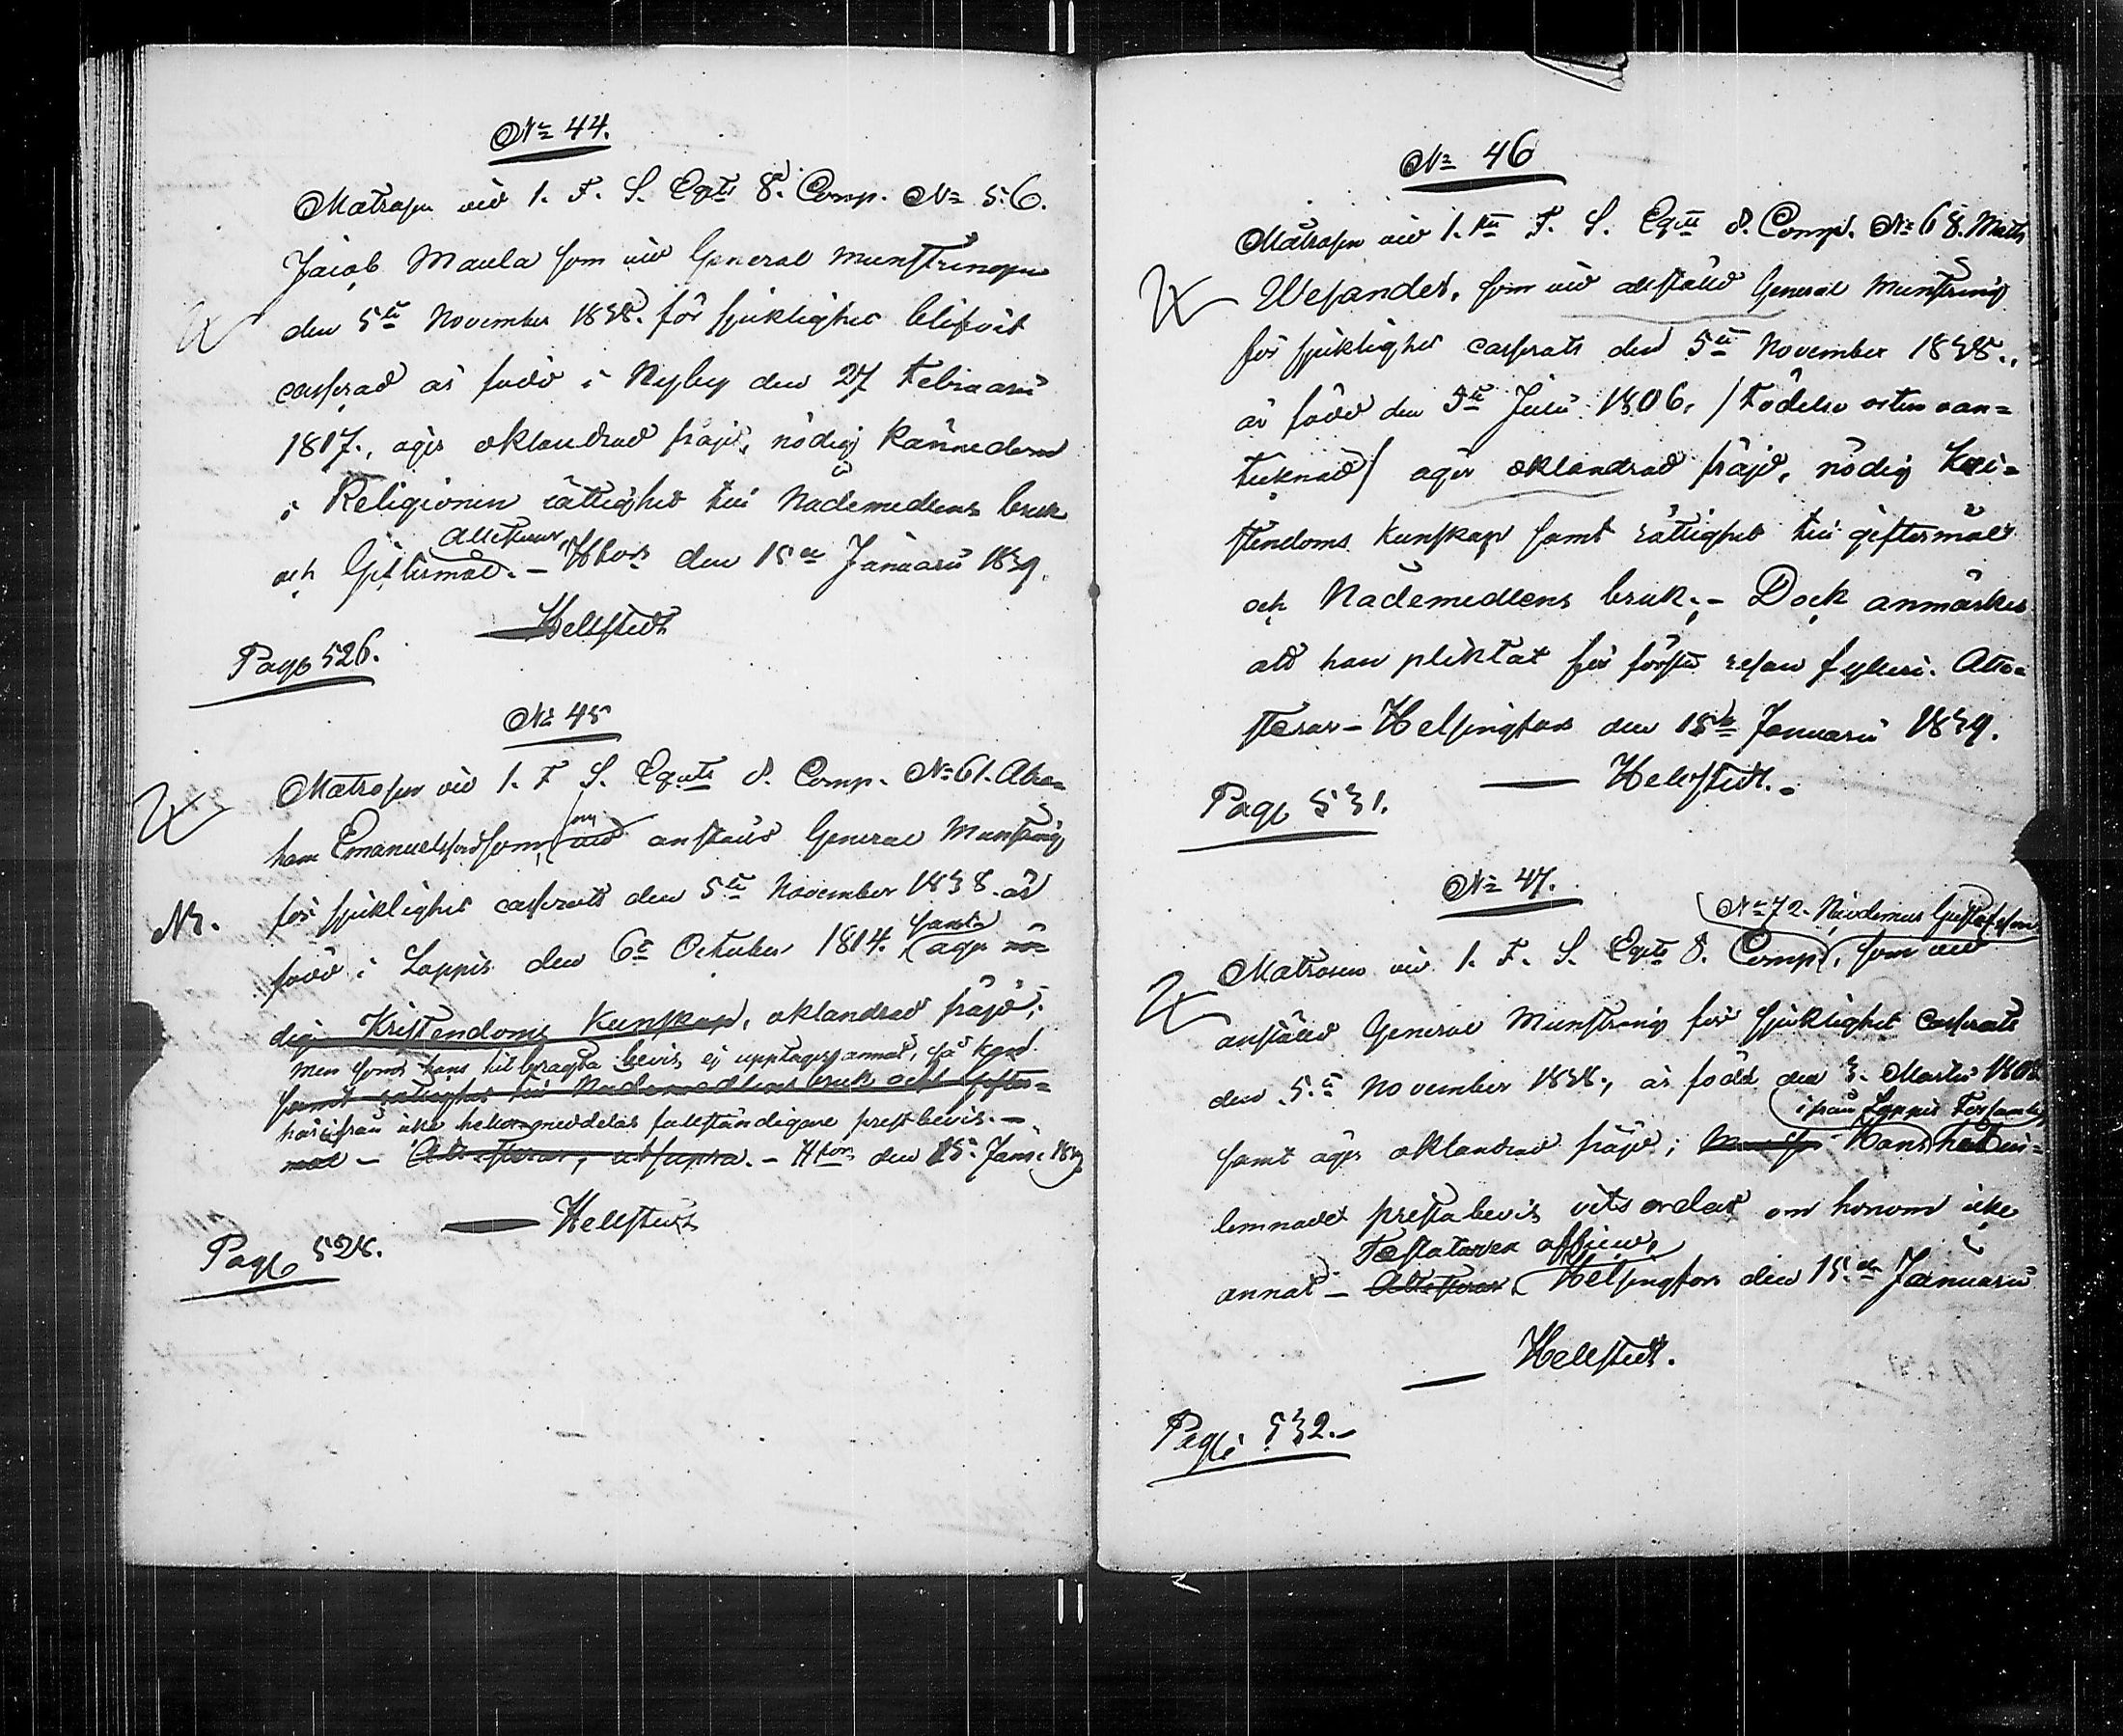 No 44.
Matrosen vid 1. F. S. Eqts 8. Comp. No 56.
Jacob Maula som vid General Munstringen
den 5te November 1838. för sjuklighet blifvit
casserad är född i Nyby den 27 Februarii
1817., äger oklandrad fräjd, nödig kännedom
i Religionen rättighet till Nådemedlens bruk
och Giftermål. - Attesterar Hfors den 15de Januarii 1839.
Hellstedt
Page 526.
No 45
Matrosen vid 1. F S. Eqts 8. Comp. No 61. Abra-
ham Emanuelsson som vid anstäld General Munstring
för sjuklighet casserats den 5te November 1838. är
NB.
född i Lappis den 6te October 1814. samt äger nö-
dig Kristendoms Kunskap, oklandrad fräjd;
men som hans tilbragta bevis ej upptager annat, så kan
samt rättighet till Nådemedlens bruk och Gifter-
härifrån icke heller meddelas fullständigare prestbevis. -
mål - Attesterar, ut supra. - Hfors den 15. Janu. 1839
Hellstedt
Page 528.
No 46
Matrosen vid 1. sta F. S. Eqts 8. Comp. No 68. Matts
Wesander, som vid anstäld General Munstring
för sjuklighet casserats den 5te November 1838.,
är född den 5te Julii 1806, / Födelse orten oan-
teknad / äger oklandrad fräjd, nödig Kri-
stendoms Kunskap samt rättighet till giftermål
och Nådemedlens bruk; - Dock anmärkes
att han pliktat för första resan fylleri. Atte-
sterar - Helsingfors den 15de Januarii 1839.
Hellstedt.
Page 531.
No 47.
No 72. Nicodemus Gustafsson
Matrosen vid 1. F. S. Eqts 8. Comp., som vid
anstäld General Munstring för sjuklighet casserats
den 5te November 1838., är född den 3. Martii 1808
ifrån Lappis Församl.
samt äger oklandrad fräjd; Hans hit in-
lemnade prestabevis vitsordar om honom icke
Testatarven officio,
annat - Attesterar Helsingfors den 15de Januarii
Hellstedt.
Page 532. -